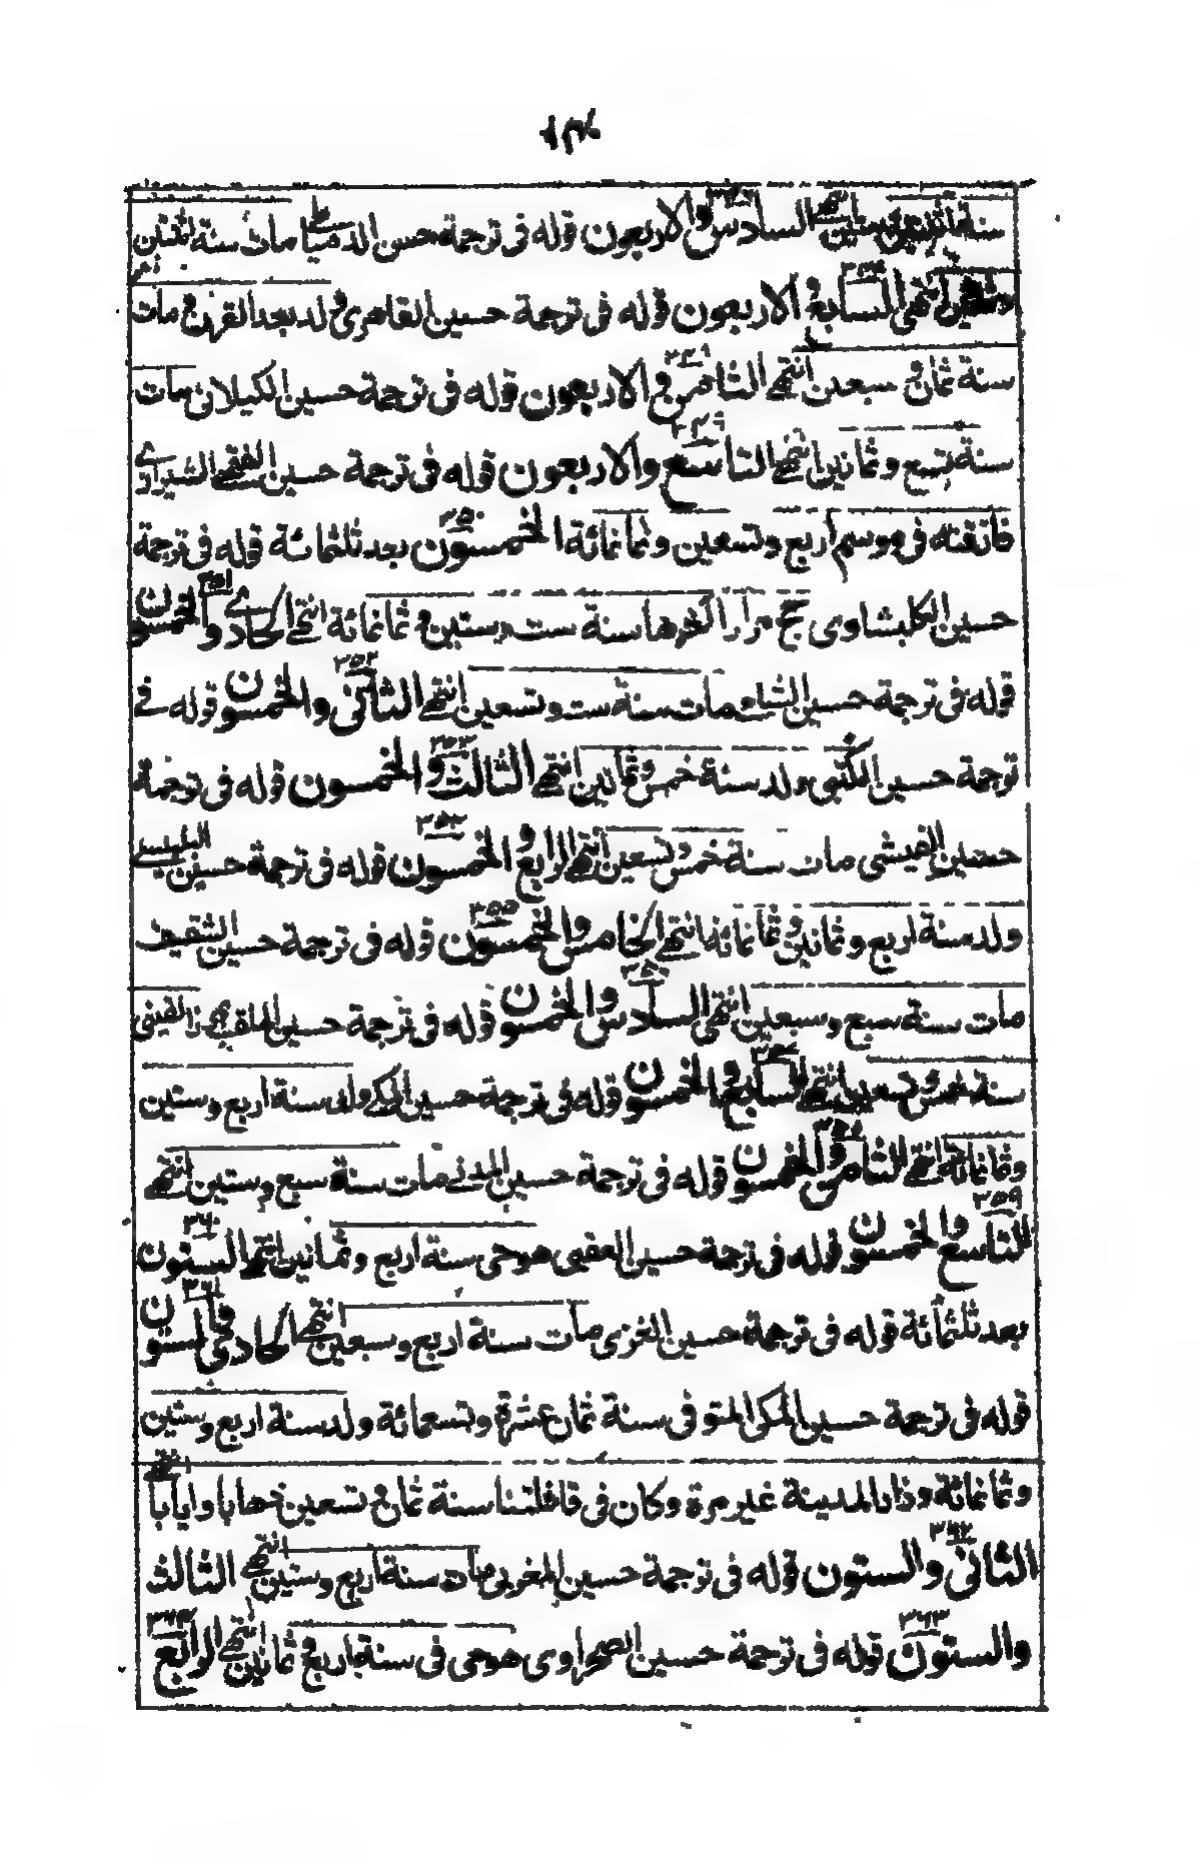 ١٣٤
سنة اثنتين وستين انتهى السادس والاربعون قوله فى ترجمة حسن الدمياطى مات سنة اثنتين
انتهى السابع والاربعون قوله فى ترجمة حسين القاهرى ولد بعد القرن ومات
سنة ثمان وسبعين انتهى الثامن والاربعون قوله فى ترجمة حسين الكيلانى مات
سنة تسع وثمانين انتهى التاسع والاربعون قوله فى ترجمة حسين الفقى الشيرازى
فى موسم اربع وتسعين وثمانمائة الخمسون بعد ثلثمائة قوله فى ترجمة
حسين الكلبشاوى حج مرارا اخرها سنة ست وستين وثمانمائة انتهى الحادى والخمسون
قوله فى ترجمة حسين مات سنة ست وتسعين انتهى الثانى والخمسون قوله فى
ترجمة حسين الكتبى ولد سنة خمس وثمانين انتهى الثالث والخمسون قوله فى ترجمة
حسين الفيشى مات سنة خمس وتسعين انتهى الرابع والخمسون قوله فى ترجمة حسين
ولد سنة اربع وثمانين وثمانمائة انتهى الخامس والخمسون قوله فى ترجمة حسين الشقيف
مات سنة سبع وسبعين انتهى السادس والخمسون قوله فى ترجمة حسين الملقب
سنة خمس وتسعين انتهى السابع والخمسون قوله فى ترجمة حسين المكى ولد سنة اربع وستين
وثمانمائة انتهى الثامن والخمسون قوله فى ترجمة حسين المدنى مات سنة سبع وستين انتهى
التاسع والخمسون قوله فى ترجمة حسين العقيبى هو حى سنة اربع وثمانين انتهى الستون
بعد ثلثمائة قوله فى ترجمة حسين الغزى مات سنة اربع وسبعين انتهى الحادى والستون
قوله فى ترجمة حسين المكى المتوفى سنة ثمان عشرة وتسعمائة ولد سنة اربع وستين
وثمانمائة وزار المدينة غير مرة وكان فى قافلتنا سنة ثمان وتسعين ذهابا وايابا انتهى
الثانى والستون قوله فى ترجمة حسين المغربى مات سنة اربع وستين انتهى الثالث
والستون قوله فى ترجمة حسين الصحراوى هو حى فى سنة اربع وثمانين انتهى الرابع